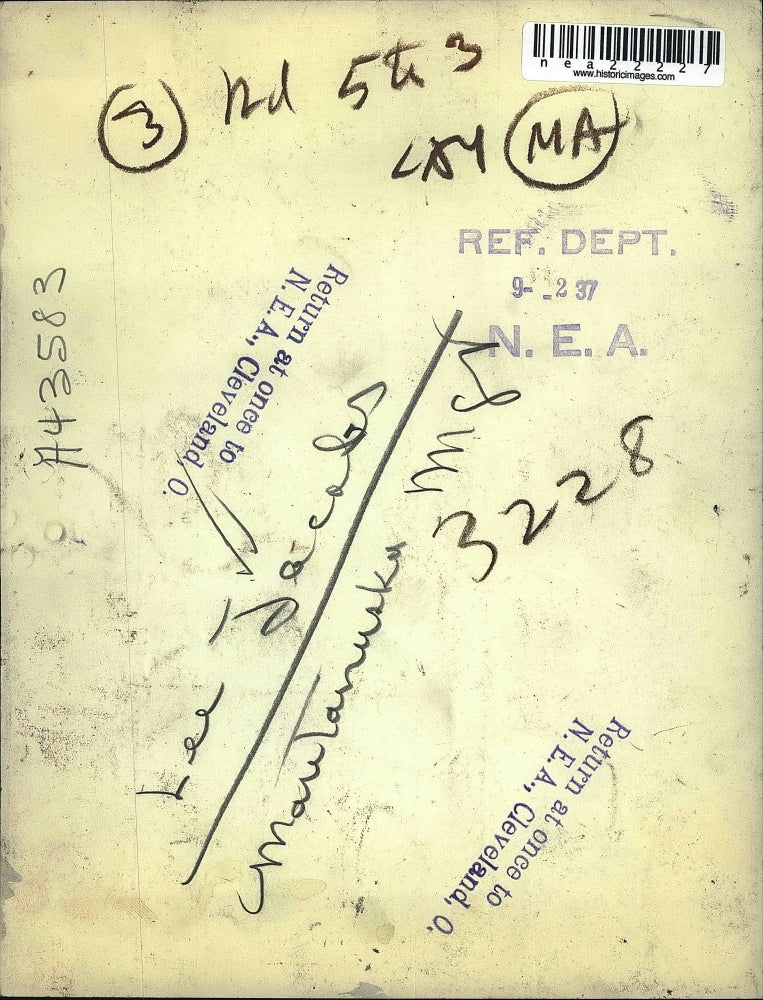 nea22227
www.historicimages.com
3 Rd 5th 3
MA
REF. DEPT.
9- -2 37
N. E. A.
Return at once to
N. E. A., Cleveland, O.
A43583
Lee - Jacobs
Matanuska
3228
Return at once to
N. E. A., Cleveland, O.